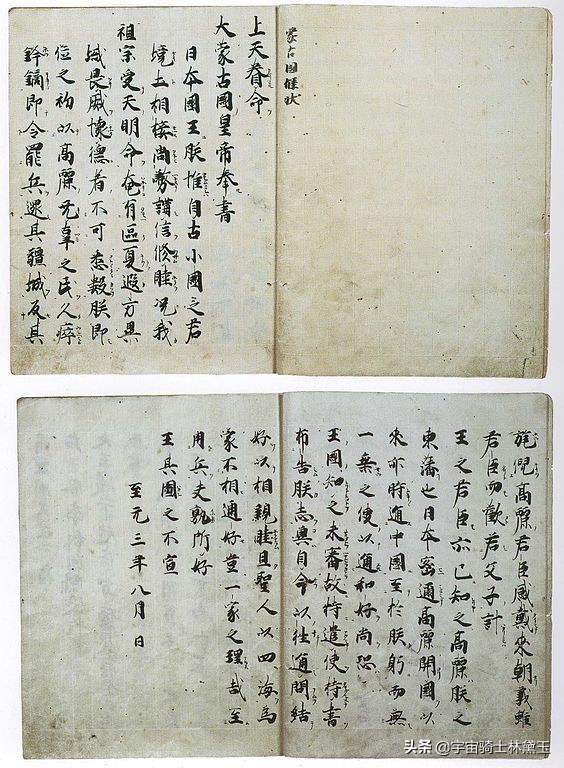 蒙古國牒状
上天眷命
大蒙古國皇帝奉書
日本國王朕惟自古小國之君
境土相接尚務講信修睦况我
祖宗受天明命奄有區夏遐方異
域畏威懐德者不可悉數朕即
位之初以高麗无辜之民久瘁
鋒鏑即令罷兵還其疆城反其
旄倪高麗君臣感戴來朝義雖
君臣而歡若父子計
王之君臣亦已知之高麗朕之
東藩也日本密迩高麗開國以
來亦時通中國至於朕躬而無
一乗之使以通和好尚恐
王國知之未審故特遣使持書
布告朕志冀自今以往通問結
好以相親睦且聖人以四海爲
家不相通好豈一家之理哉至
用兵夫孰所好
王其圖之不宣
至元三年八月 日
头条 @宇宙骑士林黛玉